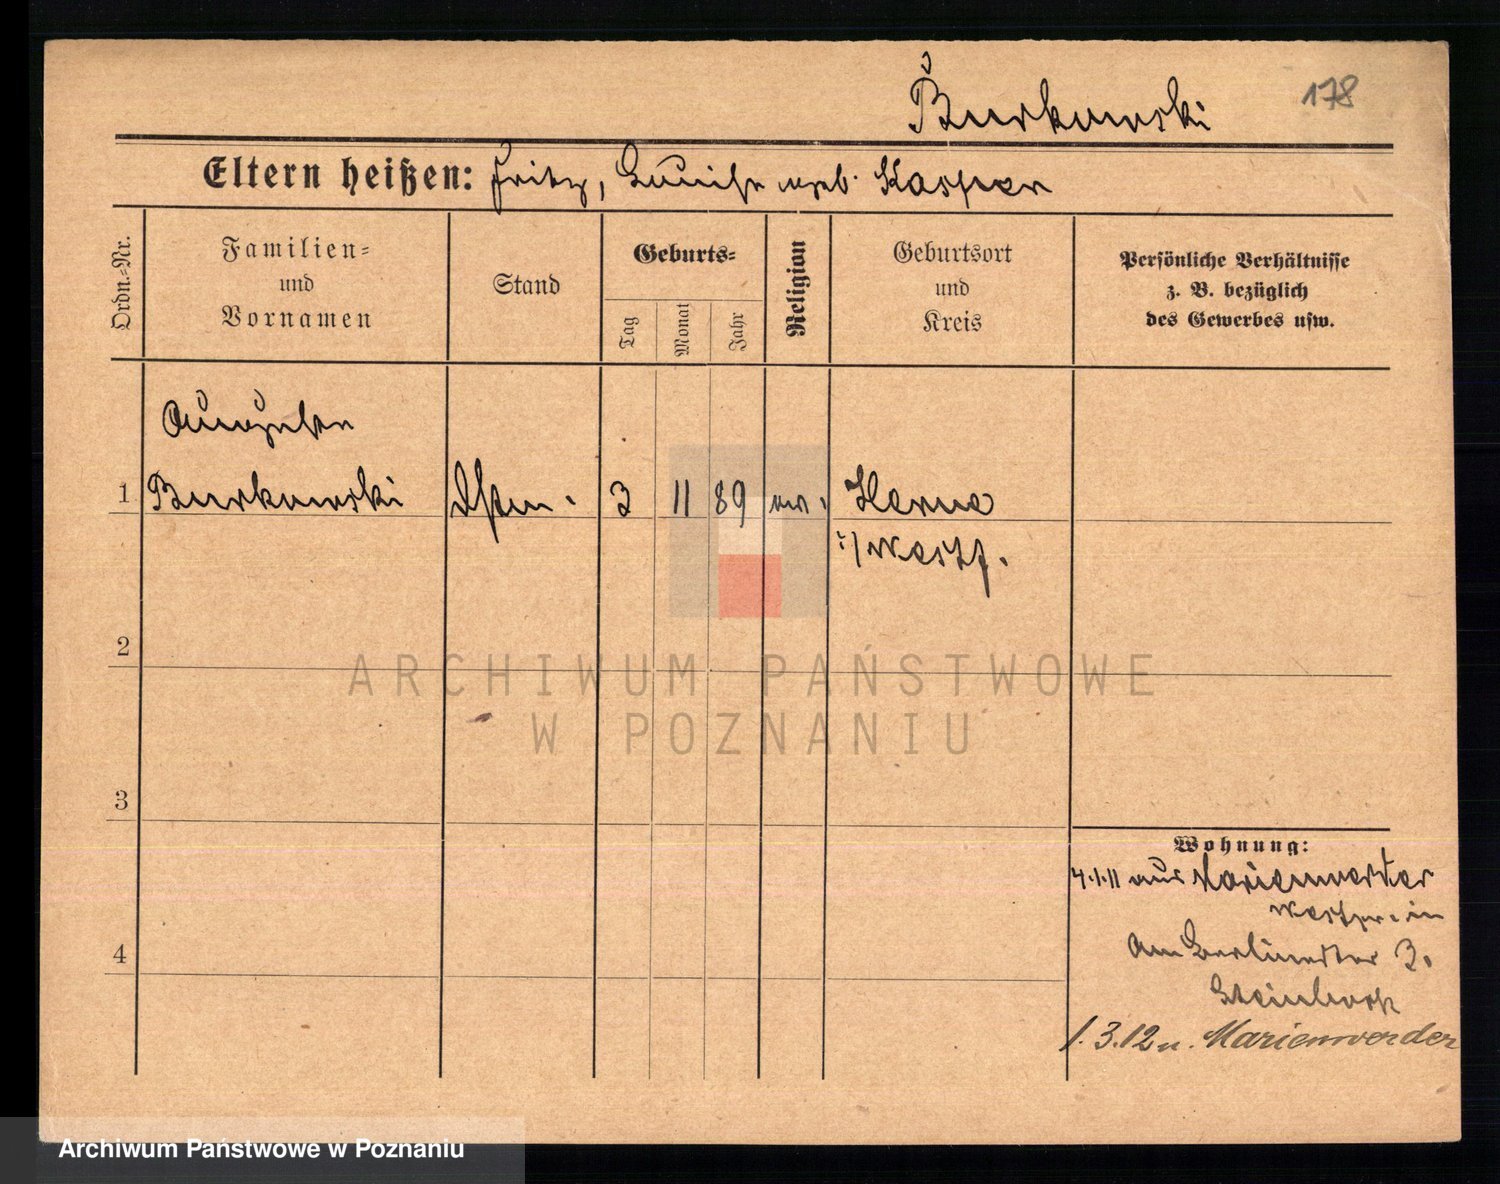 Burkowski 178
Eltern heißen: Fritz, Luise geb. Kasper
Ordn.=Nr.
Familien=
und
Vornamen
Stand
Geburts=
Tag
Monat
Jahr
Religion
Geburtsort
und
Kreis
Persönliche Verhältnisse
z. B. bezüglich
des Gewerbes usw.
Auguste
1 Burkowski 3 11 89 ev. Herne
i/Westf.
2
3
4
Wohnung:
4.1.11 aus Marienwerder
Westpr. in
Am Berliner Tor 3.
1.3.12 n. Marienwerder
ARCHIWUM PAŃSTWOWE
W POZNANIU
Archiwum Państwowe w Poznaniu